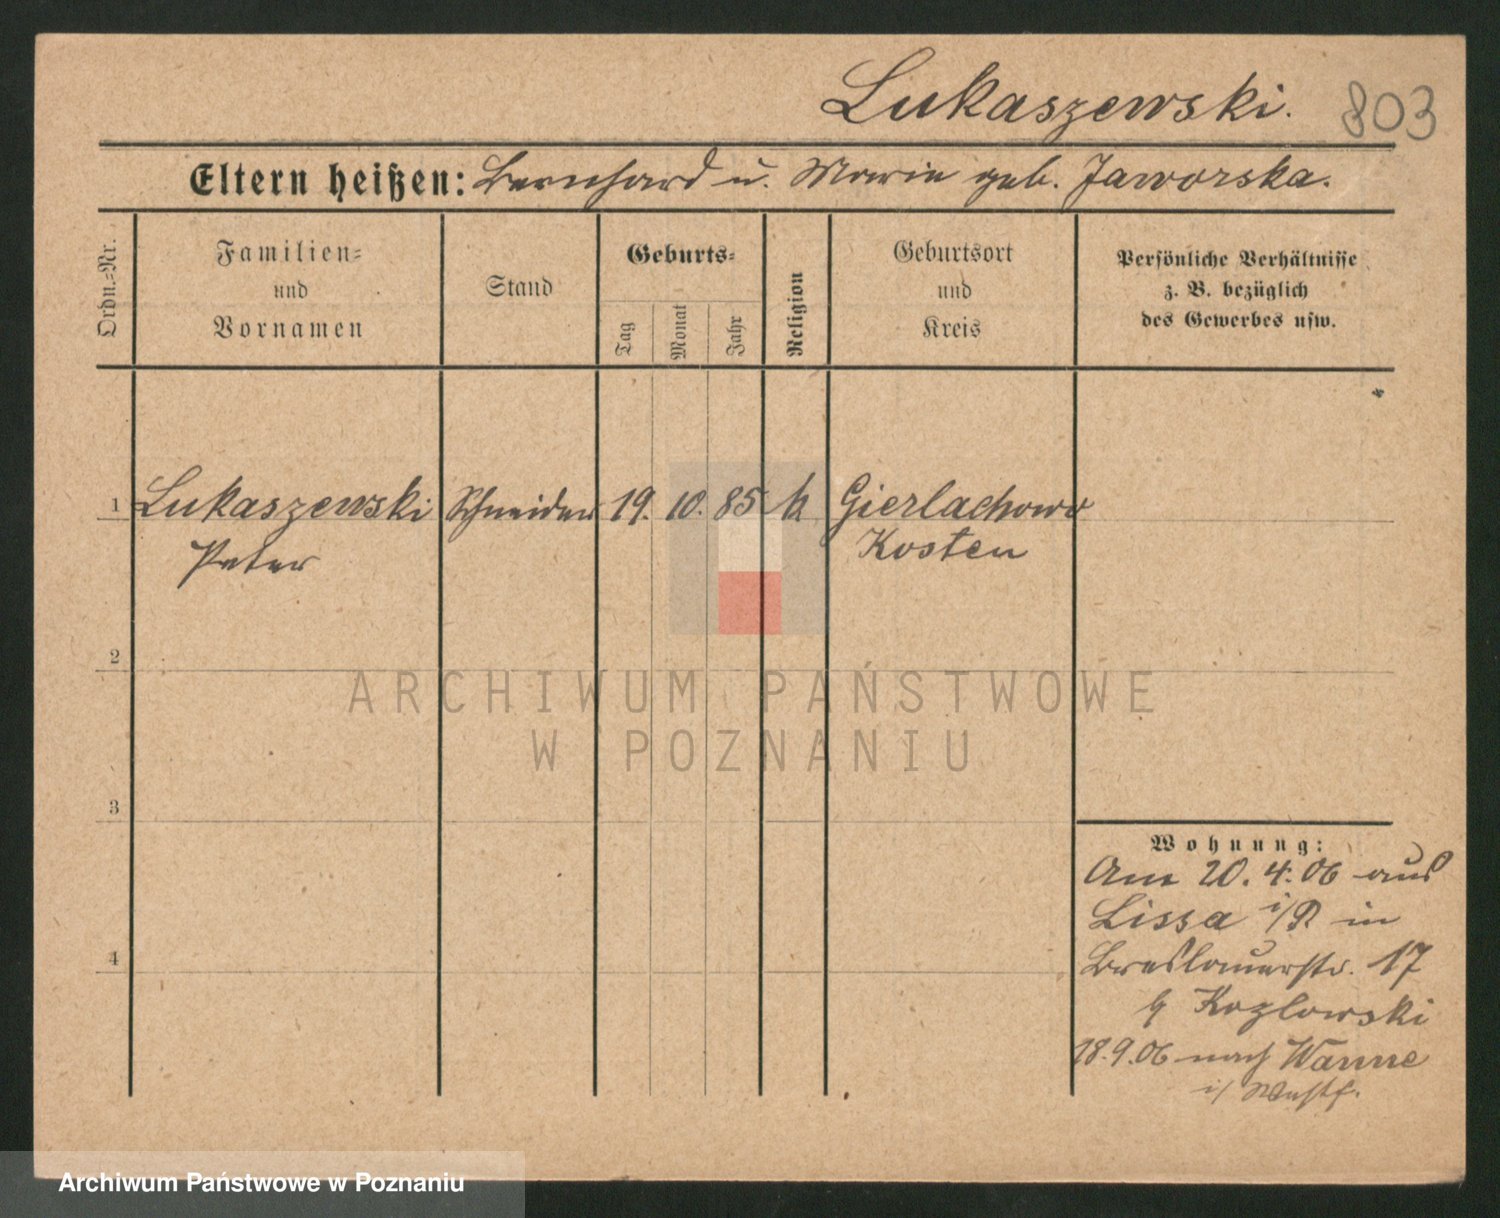 Lukaszewski. 803
Eltern heißen: Bernhard u. Marie geb. Jaworska.
Ordn.-Nr.
Familien-
und
Vornamen
Stand
Geburts-
Tag
Monat
Jahr
Religion
Geburtsort
und
Kreis
Persönliche Verhältnisse
z. B. bezüglich
des Gewerbes usw.
1 Lukaszewski Schneider 19. 10. 85 k Gierlachowo
Peter Kosten
2
ARCHIWUM PAŃSTWOWE
W POZNANIU
3
Wohnung:
Am 20.4.06 aus
Lissa i/P. in
Breslauerstr. 17
b Kozlowski
4
18.9.06 nach Wanne
i/ Westf.
Archiwum Państwowe w Poznaniu